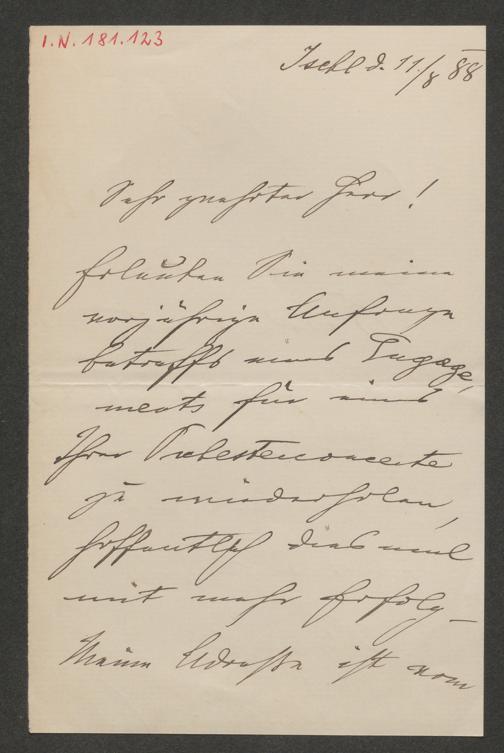 I.N. 181.123
Ischl d. 11./8 88
Sehr geehrter Herr!
Erlauben Sie meine
vorjährige Anfrage
betreffs eines Engage-
ments für eines
Ihrer Orchesterconcerte
zu wiederholen,
hoffentlich diesmal
mit mehr Erfolg –
Meine Adresse ist vom